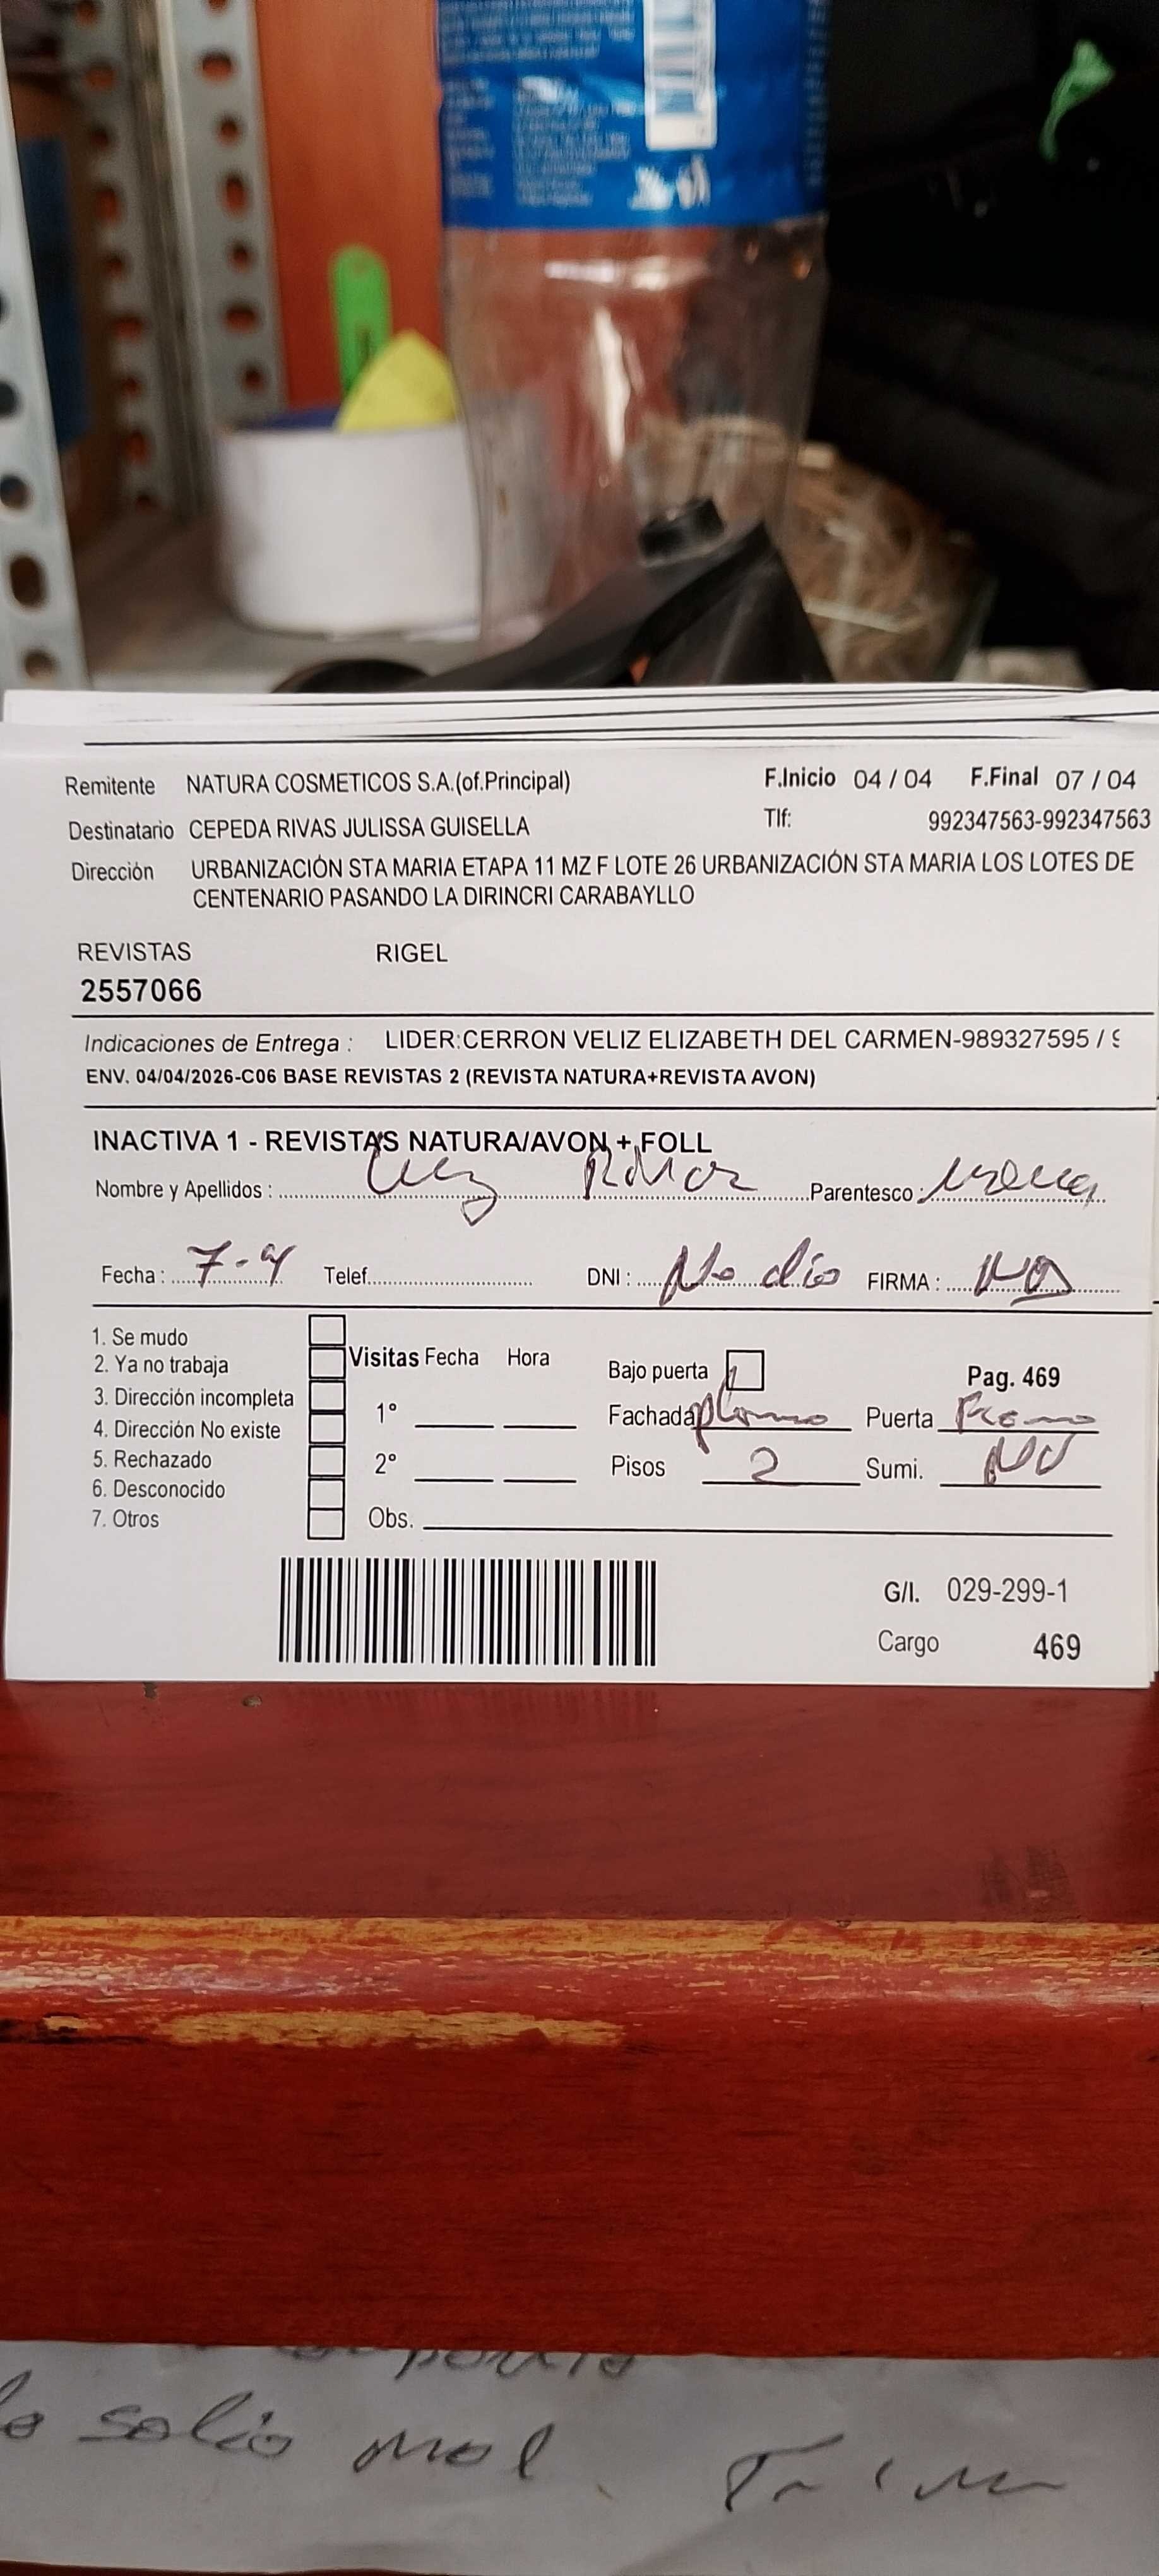 Remitente NATURA COSMETICOS S.A.(of.Principal) F.Inicio 04 / 04 F.Final 07 / 04
Destinatario CEPEDA RIVAS JULISSA GUISELLA Tlf: 992347563-992347563
Dirección URBANIZACIÓN STA MARIA ETAPA 11 MZ F LOTE 26 URBANIZACIÓN STA MARIA LOS LOTES DE
CENTENARIO PASANDO LA DIRINCRI CARABAYLLO
REVISTAS RIGEL
2557066
Indicaciones de Entrega : LIDER:CERRON VELIZ ELIZABETH DEL CARMEN-989327595 / 9
ENV. 04/04/2026-C06 BASE REVISTAS 2 (REVISTA NATURA+REVISTA AVON)
INACTIVA 1 - REVISTAS NATURA/AVON + FOLL
Nombre y Apellidos : Luz Parentesco :
Fecha : 7-4 Telef. DNI : No dio FIRMA : NO
1. Se mudo
2. Ya no trabaja Visitas Fecha Hora Bajo puerta Pag. 469
3. Dirección incompleta 1° Fachada plomo Puerta
4. Dirección No existe
5. Rechazado 2° Pisos 2 Sumi. NO
6. Desconocido
7. Otros Obs.
G/I. 029-299-1
Cargo 469
salio mal